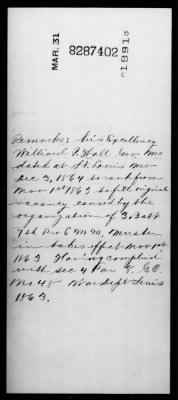 MAR. 31
8287402
1891
Remarks: his Excellency
William P. Hall Gov. Mo
dated at St. Louis Mo
Dec 3, 1864 to rank from
Nov 1st 1863 to fill original
vacancy caused by the
organization of 3 Batt
7th Pro E M M. Muster
in takes effect Nov 1st
1863 Having complied
with sec 4 Par G.O.
No 48 War Dept Series
1863.